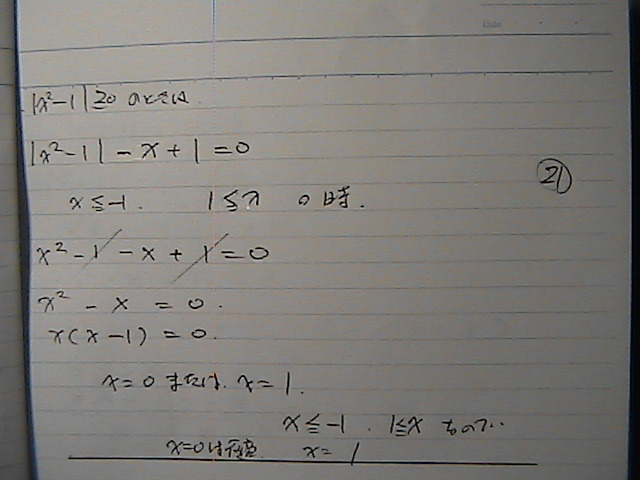 |x²-1|≧0 のときは
|x²-1|-x+1=0
㉑
x≦-1. 1≦x の時.
x²-1-x+1=0
x²-x=0.
x(x-1)=0.
x=0 または. x=1.
x≦-1. 1≦x なので..
x=0は不適 x=1